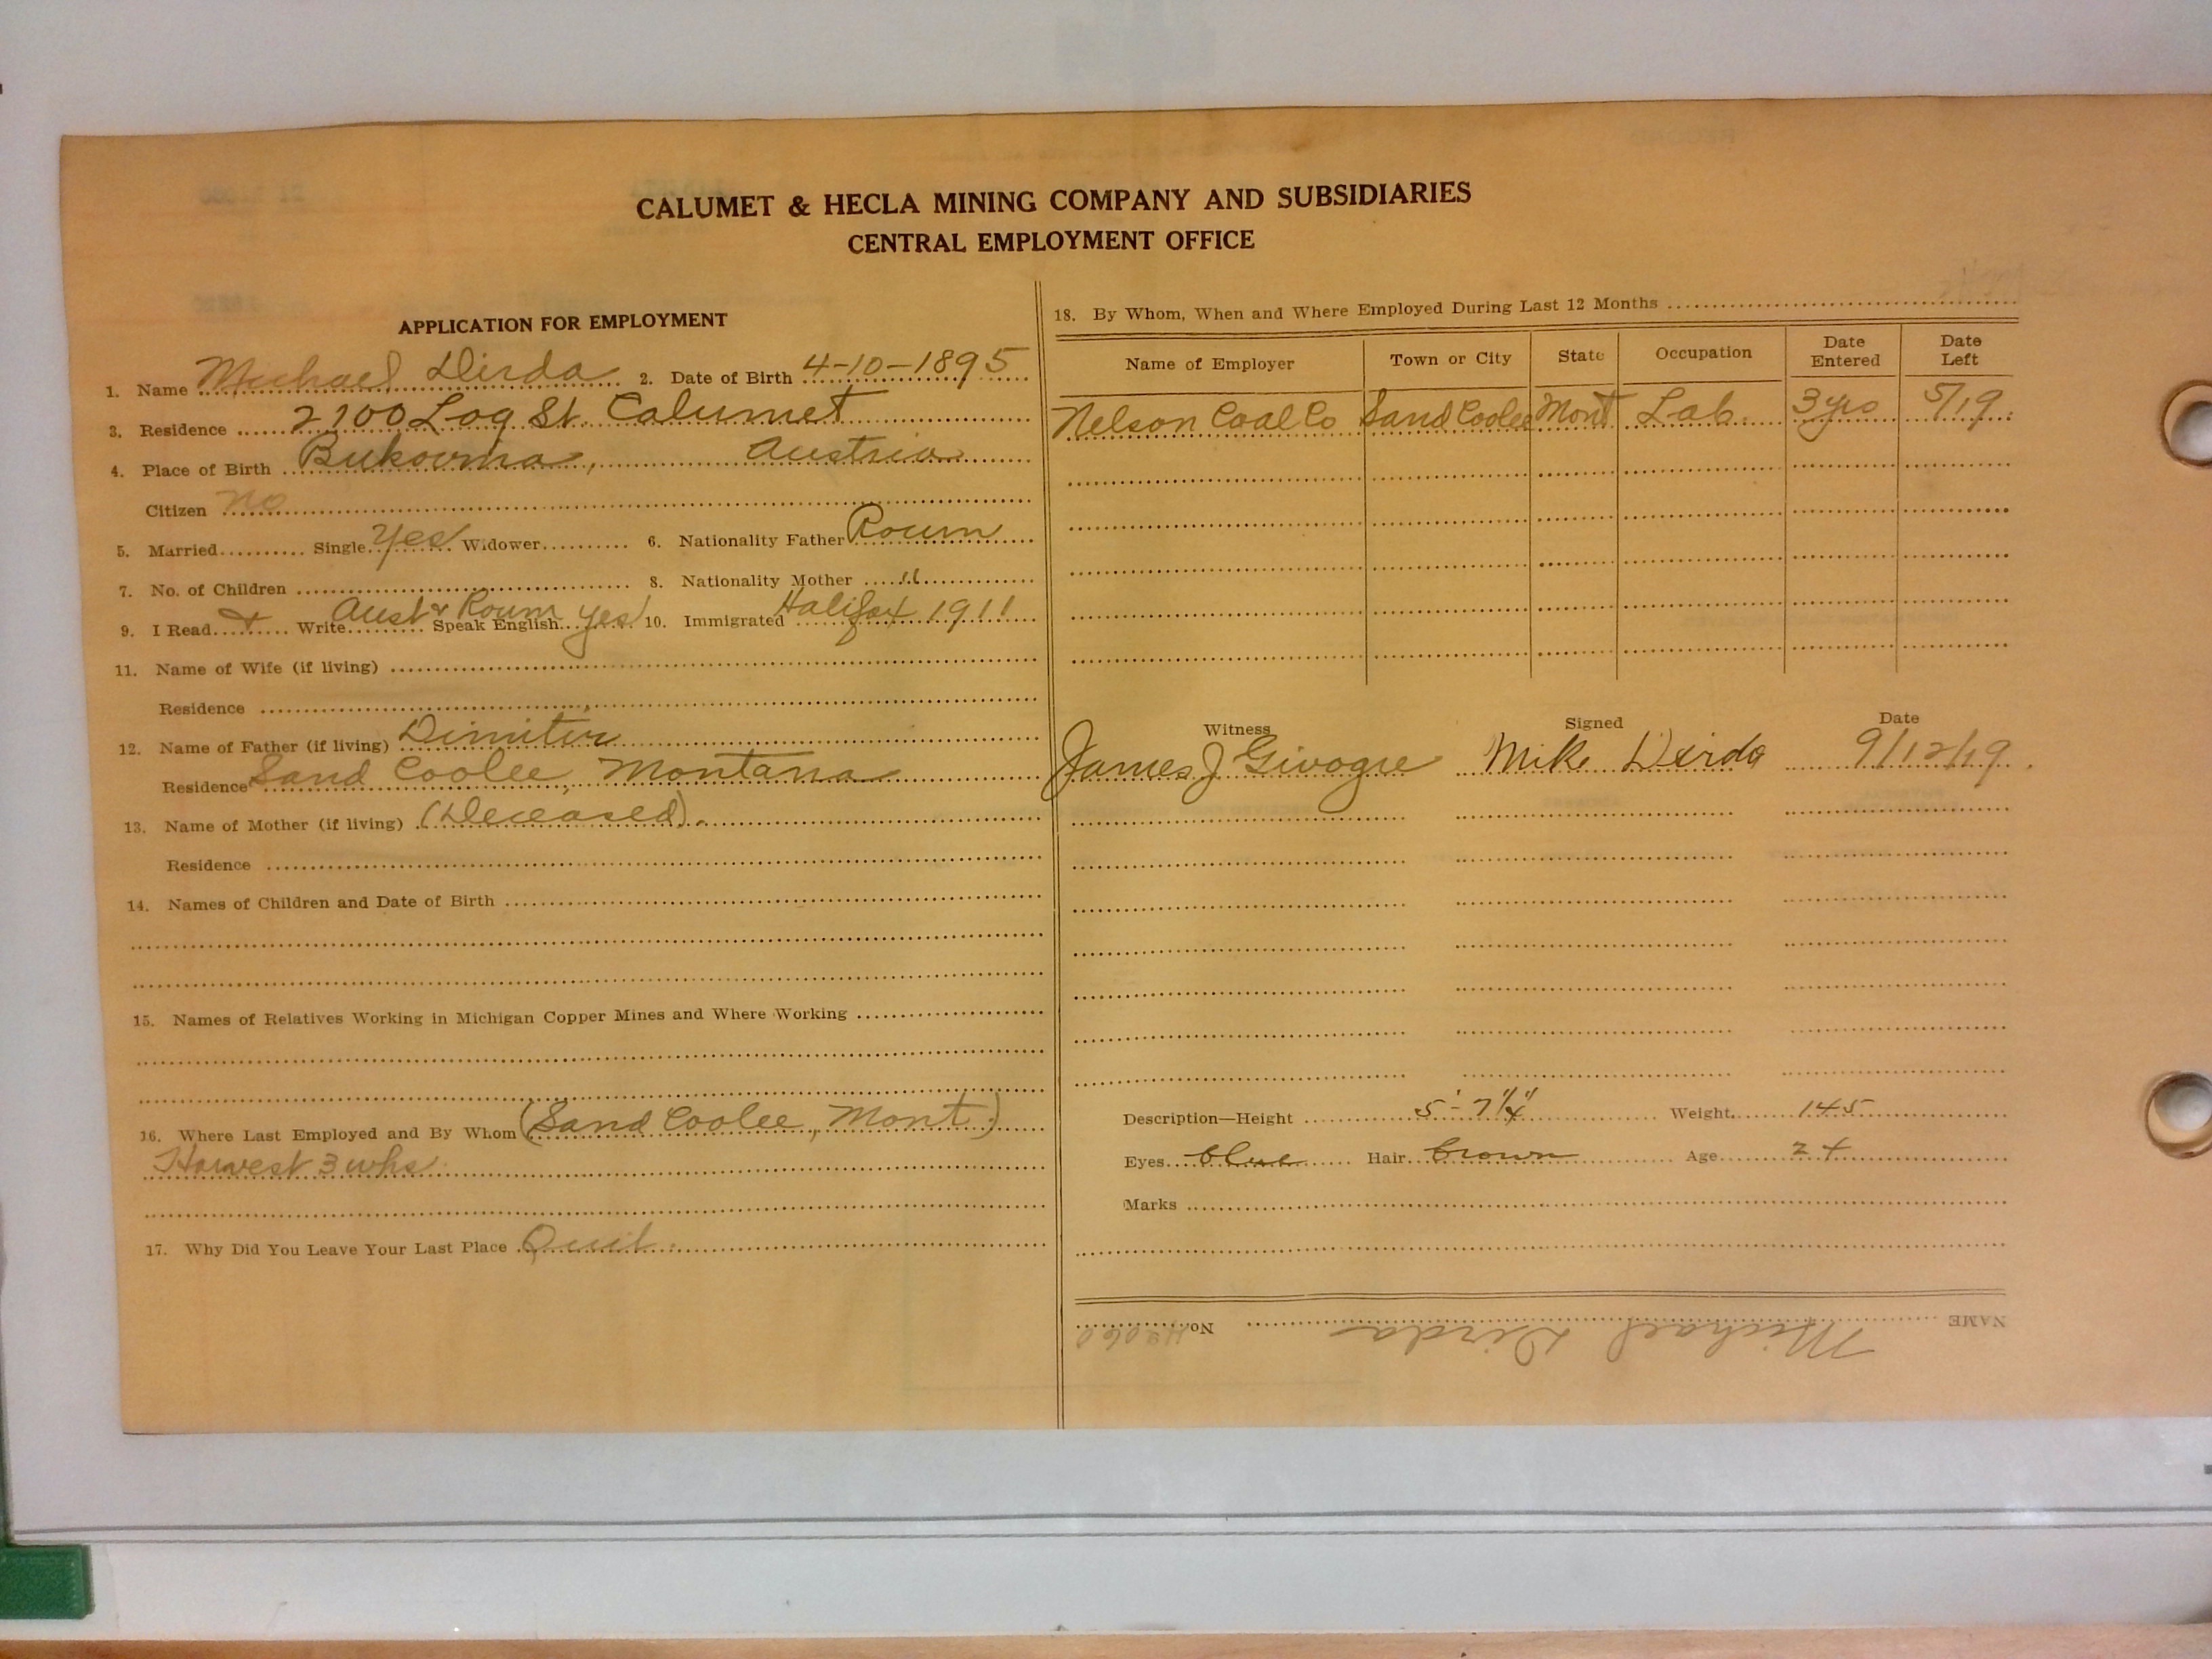 CALUMET & HECLA MINING COMPANY AND SUBSIDIARIES
CENTRAL EMPLOYMENT OFFICE
APPLICATION FOR EMPLOYMENT
1. Name Michael Dirda 2. Date of Birth 4-10-1895
3. Residence 2700 Log St. Calumet
4. Place of Birth Bukovina, Austria
Citizen no
5. Married Single Yes Widower 6. Nationality Father Roum
7. No. of Children 8. Nationality Mother "
9. I Read & Write Aust & Roum Speak English yes 10. Immigrated Halifax 1911
11. Name of Wife (if living)
Residence
12. Name of Father (if living) Dimitir
Residence Sand Coolee, Montana
13. Name of Mother (if living) (Deceased).
Residence
14. Names of Children and Date of Birth
15. Names of Relatives Working in Michigan Copper Mines and Where Working
16. Where Last Employed and By Whom (Sand Coolee, Mont.)
Harvest 3 wks
17. Why Did You Leave Your Last Place Quit.
18. By Whom, When and Where Employed During Last 12 Months
Name of Employer Town or City State Occupation Date Entered Date Left
Nelson Coal Co Sand Coolee Mont Lab. 3 yrs 5/19.
Witness Signed Date
James J Givogre Mike Dirda 9/12/19.
Description—Height 5'-7¼" Weight 145
Eyes blue Hair brown Age 24
Marks
NAME Michael Dirda No.